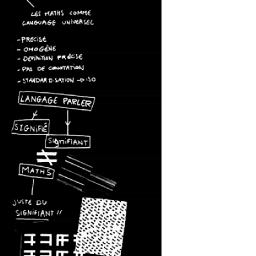 LES MATHS COMME
LANGUAGE UNIVERSEL
- PRECISE
- OMOGÉNE
- DEFINITION PRÉCISE
- PAS DE CONOTATION
- STANDARDISATION → ISO
LANGAGE PARLER
SIGNIFÉ
SIGNIFIANT
MATHS
JUSTE DU
SIGNIFIANT !!